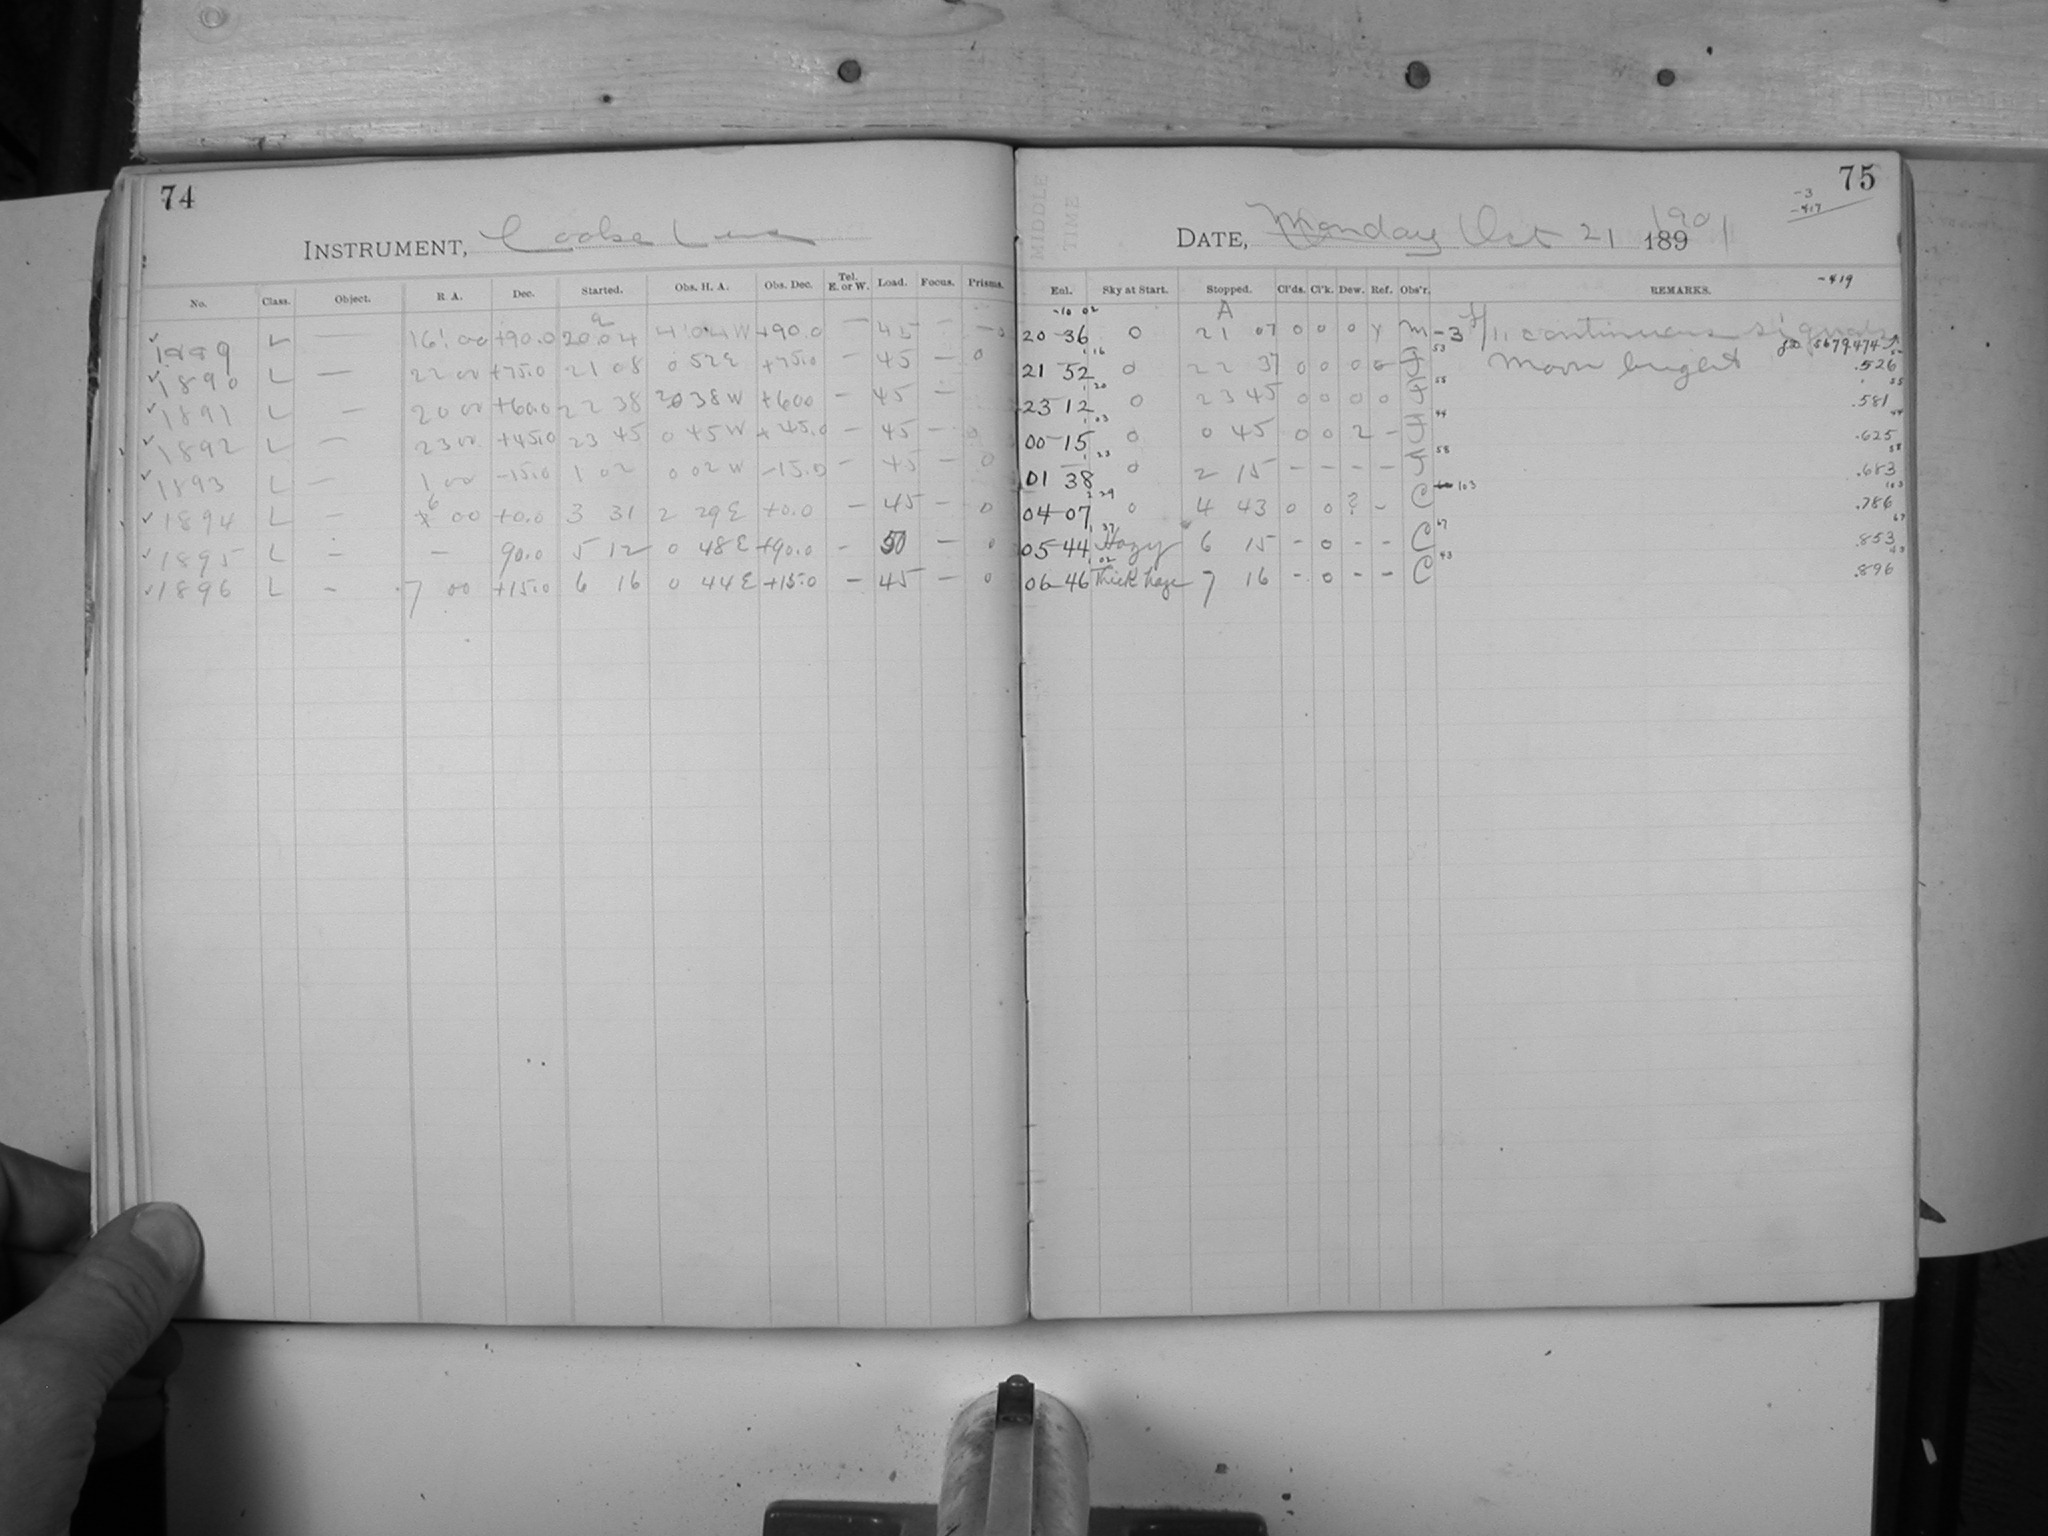 74
INSTRUMENT, Cooke Lens
No. Class. Object. R. A. Dec. Started. Obs. H. A. Obs. Dec. Tel. E. or W. Load. Focus. Prisms.
1889 L — 16 00 +90.0 20 04 4 04 W +90.0 — 45 — 0
1890 L — 22 00 +75.0 21 08 0 52 E +75.0 — 45 — 0
1891 L — 20 00 +60.0 22 38 2 38 W +60.0 — 45 —
1892 L — 23 00 +45.0 23 45 0 45 W +45.0 — 45 — 0
1893 L — 1 00 -15.0 1 02 0 02 W -15.0 — 45 — 0
1894 L — 6 00 +0.0 3 31 2 29 E +0.0 — 45 — 0
1895 L — — 90.0 5 12 0 48 E +90.0 — 50 — 0
1896 L — 7 00 +15.0 6 16 0 44 E +15.0 — 45 — 0
75
-3
-417
MIDDLE
TIME
DATE, Monday Oct 21 1901
189
-419
Enl. Sky at Start. Stopped. Cl'ds. Cl'k. Dew. Ref. Obs'r. REMARKS.
-10 02 A
20-36 0 21 07 0 0 0 Y M -3 continuous signals
5679.474
1 16 53
21 52 0 22 37 0 0 0 0 F Moon bright .526
1 20 55 55
23 12 0 23 45 0 0 0 0 F .581
1 03 44 44
00-15 0 0 45 0 0 2 - F .625
1 23 58 58
01 38 0 2 15 - - - - F .683
2 29 103 103
04-07 0 4 43 0 0 ? - C .786
1 37 67 67
05-44 Hazy 6 15 - 0 - - C .853
1 02 43 43
06-46 Thick haze 7 16 - 0 - - C .896